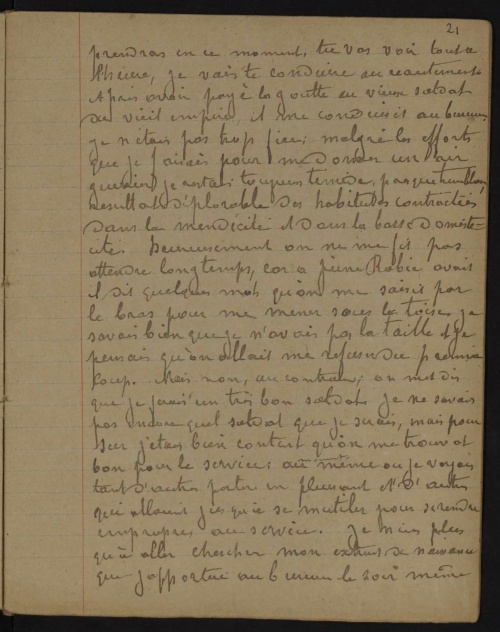 21
prendras en ce moment, tu vas voir tout a
l'heure, je vais te conduire au recrutement
Après avoir payé la goutte au vieux soldat
du vieil empire, il me conduisit au bureau
je n'étais pas trop fier; malgré les efforts
que je faisais pour me donner un air
guerrier je restais toujours timide, presque tremblant,
résultat déplorable des habitudes contractées
dans la mendicité et dans la basse domesti-
cité. Heureusement on ne me fit pas
attendre longtemps, car a peine Robic avait
il dit quelques mots qu'on me saisit par
le bras pour me mener sous la toise. je
savais bien que je n'avais pas la taille et je
pensais qu'on allait me refuser du premier
coup. Mais non, au contraire; on me dit
que je ferais un très bon soldat. je ne savais
pas encore quel soldat que je serais, mais pour
sur j'étais bien content qu'on me trouvat
bon pour le service; au même où je voyais
tant d'autres partir en pleurant et d'autres
qui allaient jusqu'à se mutiler pour se rendre
impropres au service. Je n'eus plus
qu'à aller chercher mon extrait de naissance
que j'apportai au bureau le soir même